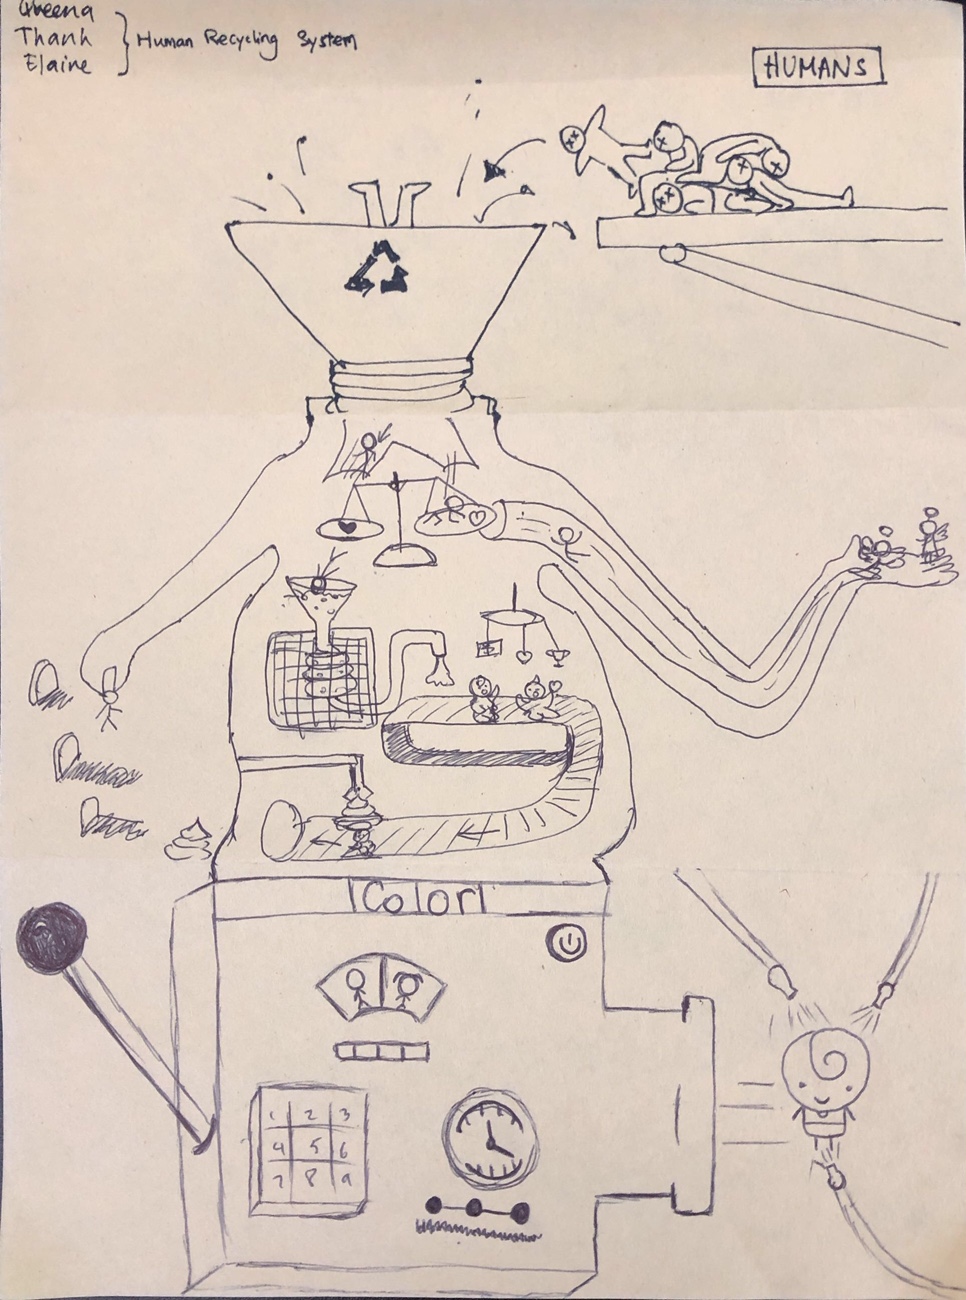 Queena
Thanh
Elaine
Human Recycling System
HUMANS
Color
1 2 3
4 5 6
7 8 9